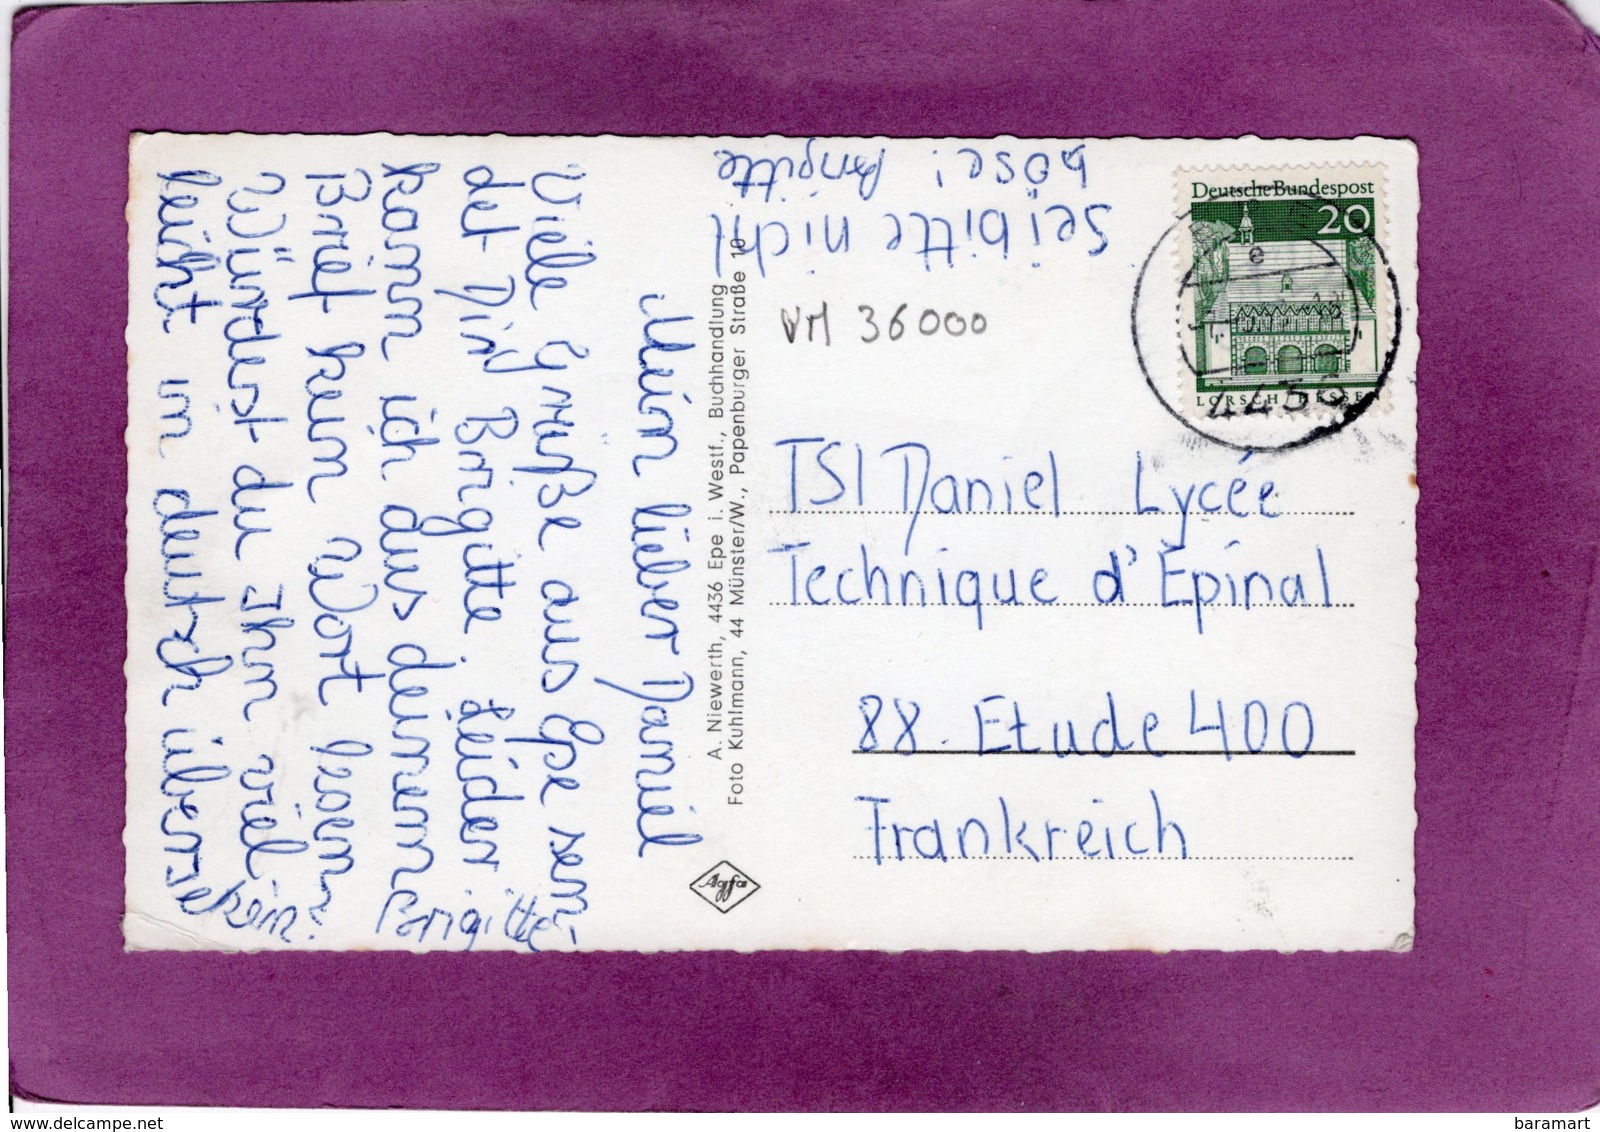 Mein lieber Daniel
Viele Grüße aus Epe sen-
det Dir Brigitte. Leider
kann ich aus deinem
Brief kein Wort lesen.
Würdest du Ihn viel
leicht in deutsch überse
Brigitte
Sei bitte nicht
böse! Brigitte
A. Niewerth, 4436 Epe i. Westf., Buchhandlung
Foto Kuhlmann, 44 Münster/W., Papenburger Straße 10
Agfa
VM 36000
Deutsche Bundespost
20
LORSCH HESSEN
e
4436
TSI Daniel Lycée
Technique d'Epinal
88. Etude 400
Frankreich
delcampe.net
baramart